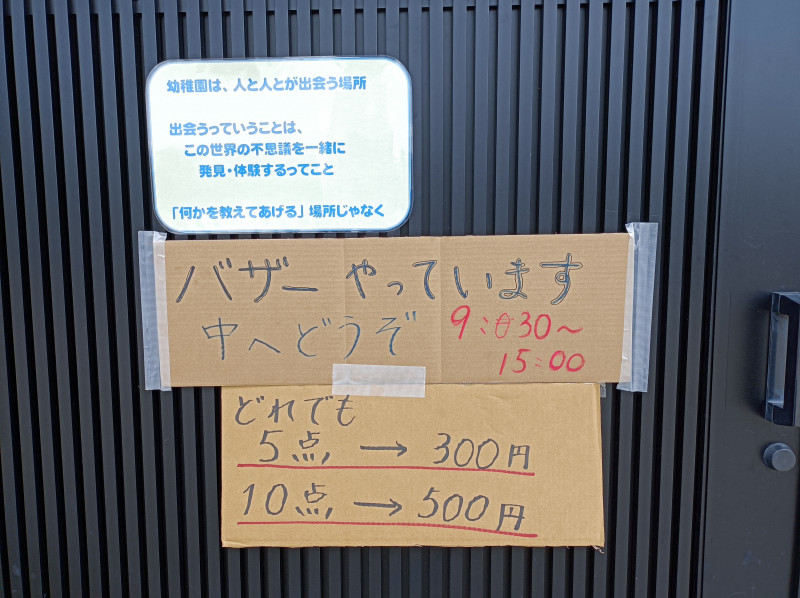 幼稚園は、人と人とが出会う場所
出会うっていうことは、
この世界の不思議を一緒に
発見・体験するってこと
「何かを教えてあげる」場所じゃなく
バザー やっています
中へどうぞ
9:30～
15:00
どれでも
5点→300円
10点→500円